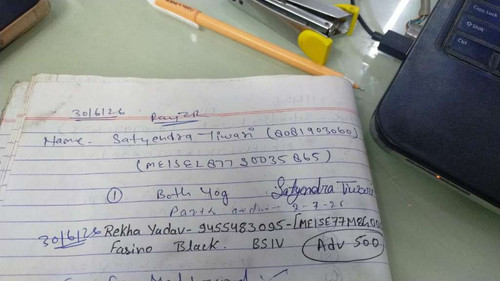 30/6/26 RayZR
Name - Satyendra Tiwari (8081903060)
(ME1SEL877 30035865)
① Both Yog Satyendra Tiwari
Parth 2-7-26
30/6/26 Rekha Yadav - 9455483095 - [ME1SE77M
Fasino Black. BSIV Adv 500
Shift
Ctrl